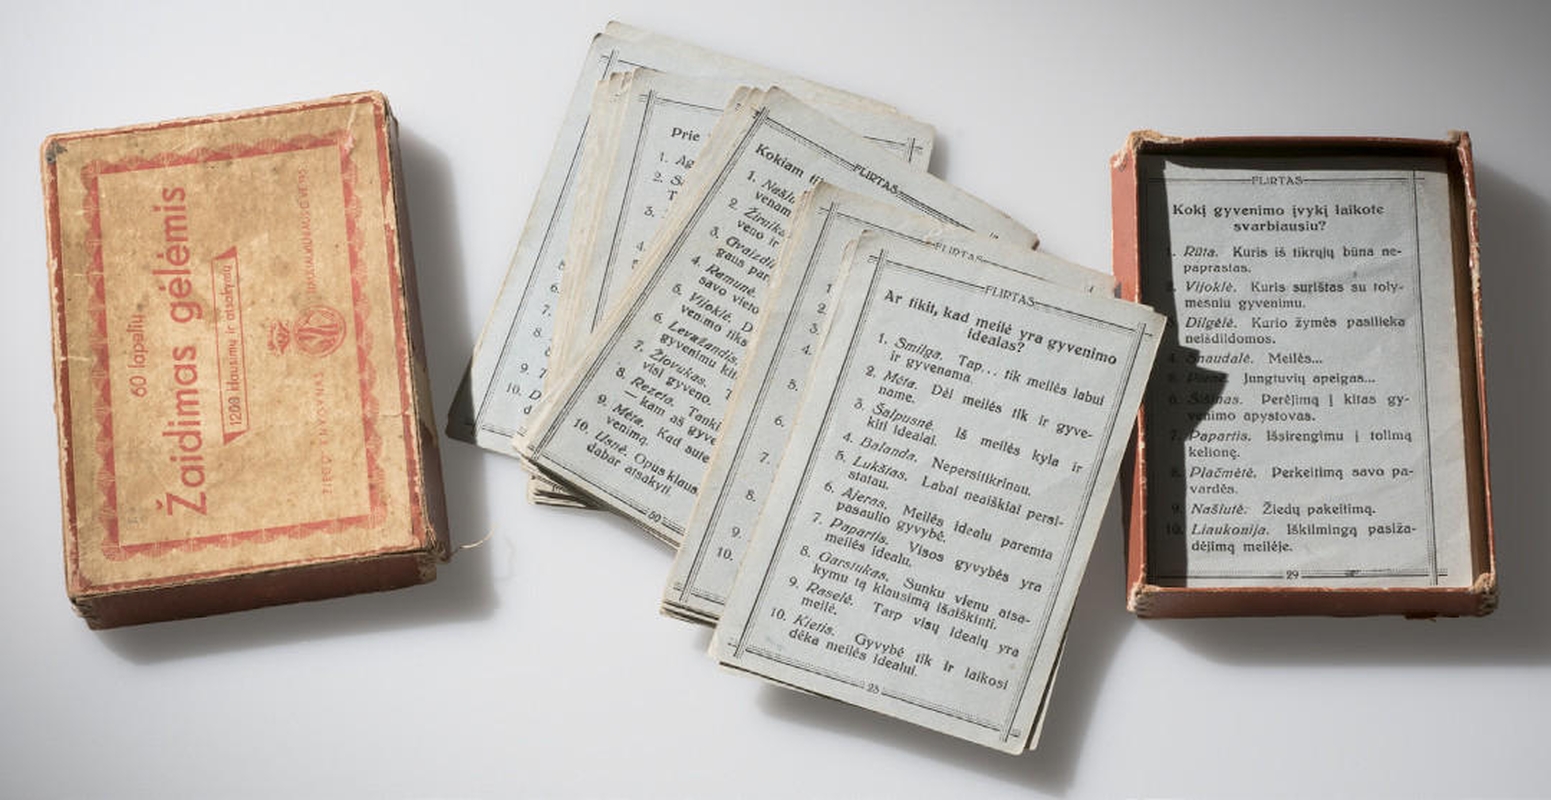 60 lapelių
Žaidimas gėlėmis
1200 klausimų ir atsakymų
Prie
1. Ag
2.
3.
4.
5.
6.
7.
8.
9. 7
10. D
FLIRTAS
Kokiam
1. Našlu
venam
2. Žiruike
veno ir
3. Gvaizdi
gaus par
4. Ramunė.
savo vieto
5. Vijoklė. D
venimo tiks
6. Levažandis.
gyvenimu kit
7. Žiovukas. T
visi gyveno.
8. Rezeta. Tanki
— kam aš gyve
9. Mėta. Kad sute
venimą.
10. Usnė. Opus klaus
dabar atsakyti.
50
FLIRTAS
1.
2.
3.
4.
5.
6.
7.
8.
9.
10.
FLIRTAS
Ar tikit, kad meilė yra gyvenimo
idealas?
1. Smilga. Tap... tik meilės labui
ir gyvenama.
2. Mėta. Dėl meilės tik ir gyve-
name.
3. Šalpusnė. Iš meilės kyla ir
kiti idealai.
4. Balanda. Nepersitikrinau.
5. Lukštas. Labai neaiškiai persi-
statau.
6. Ajeras. Meilės idealu paremta
pasaulio gyvybė.
7. Papartis. Visos gyvybės yra
meilės idealu.
8. Garstukas. Sunku vienu atsa-
kymu tą klausimą išaiškinti.
9. Raselė. Tarp visų idealų yra
meilė.
10. Kietis. Gyvybė tik ir laikosi
dėka meilės idealui.
25
FLIRTAS
Kokį gyvenimo įvykį laikote
svarbiausiu?
1. Rūta. Kuris iš tikrųjų būna ne-
paprastas.
2. Vijoklė. Kuris surištas su toly-
mesniu gyvenimu.
Dilgėlė. Kurio žymės pasilieka
neišdildomos.
4. Snaudalė. Meilės...
Jungtuvių apeigas...
6. Perėjimą į kitas gy-
venimo apystovas.
7. Papartis. Išsirengimu į tolimą
kelionę.
8. Plačmėtė. Perkeitimą savo pa-
vardės.
9. Našlutė: Žiedų pakeitimą.
10. Liaukonija. Iškilmingą pasiža-
dėjimą meilėje.
29